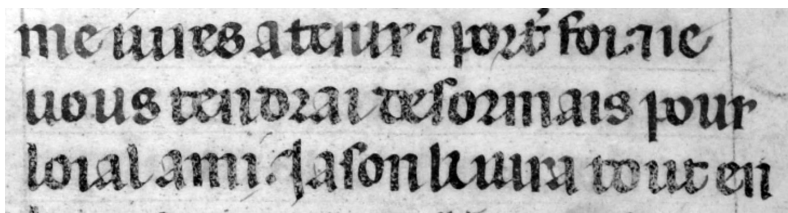 me iures a tenir ⁊ port̾ foi. ⁊ ie
uous tendrai desormais pour
loial ami. Jason li iura tout en